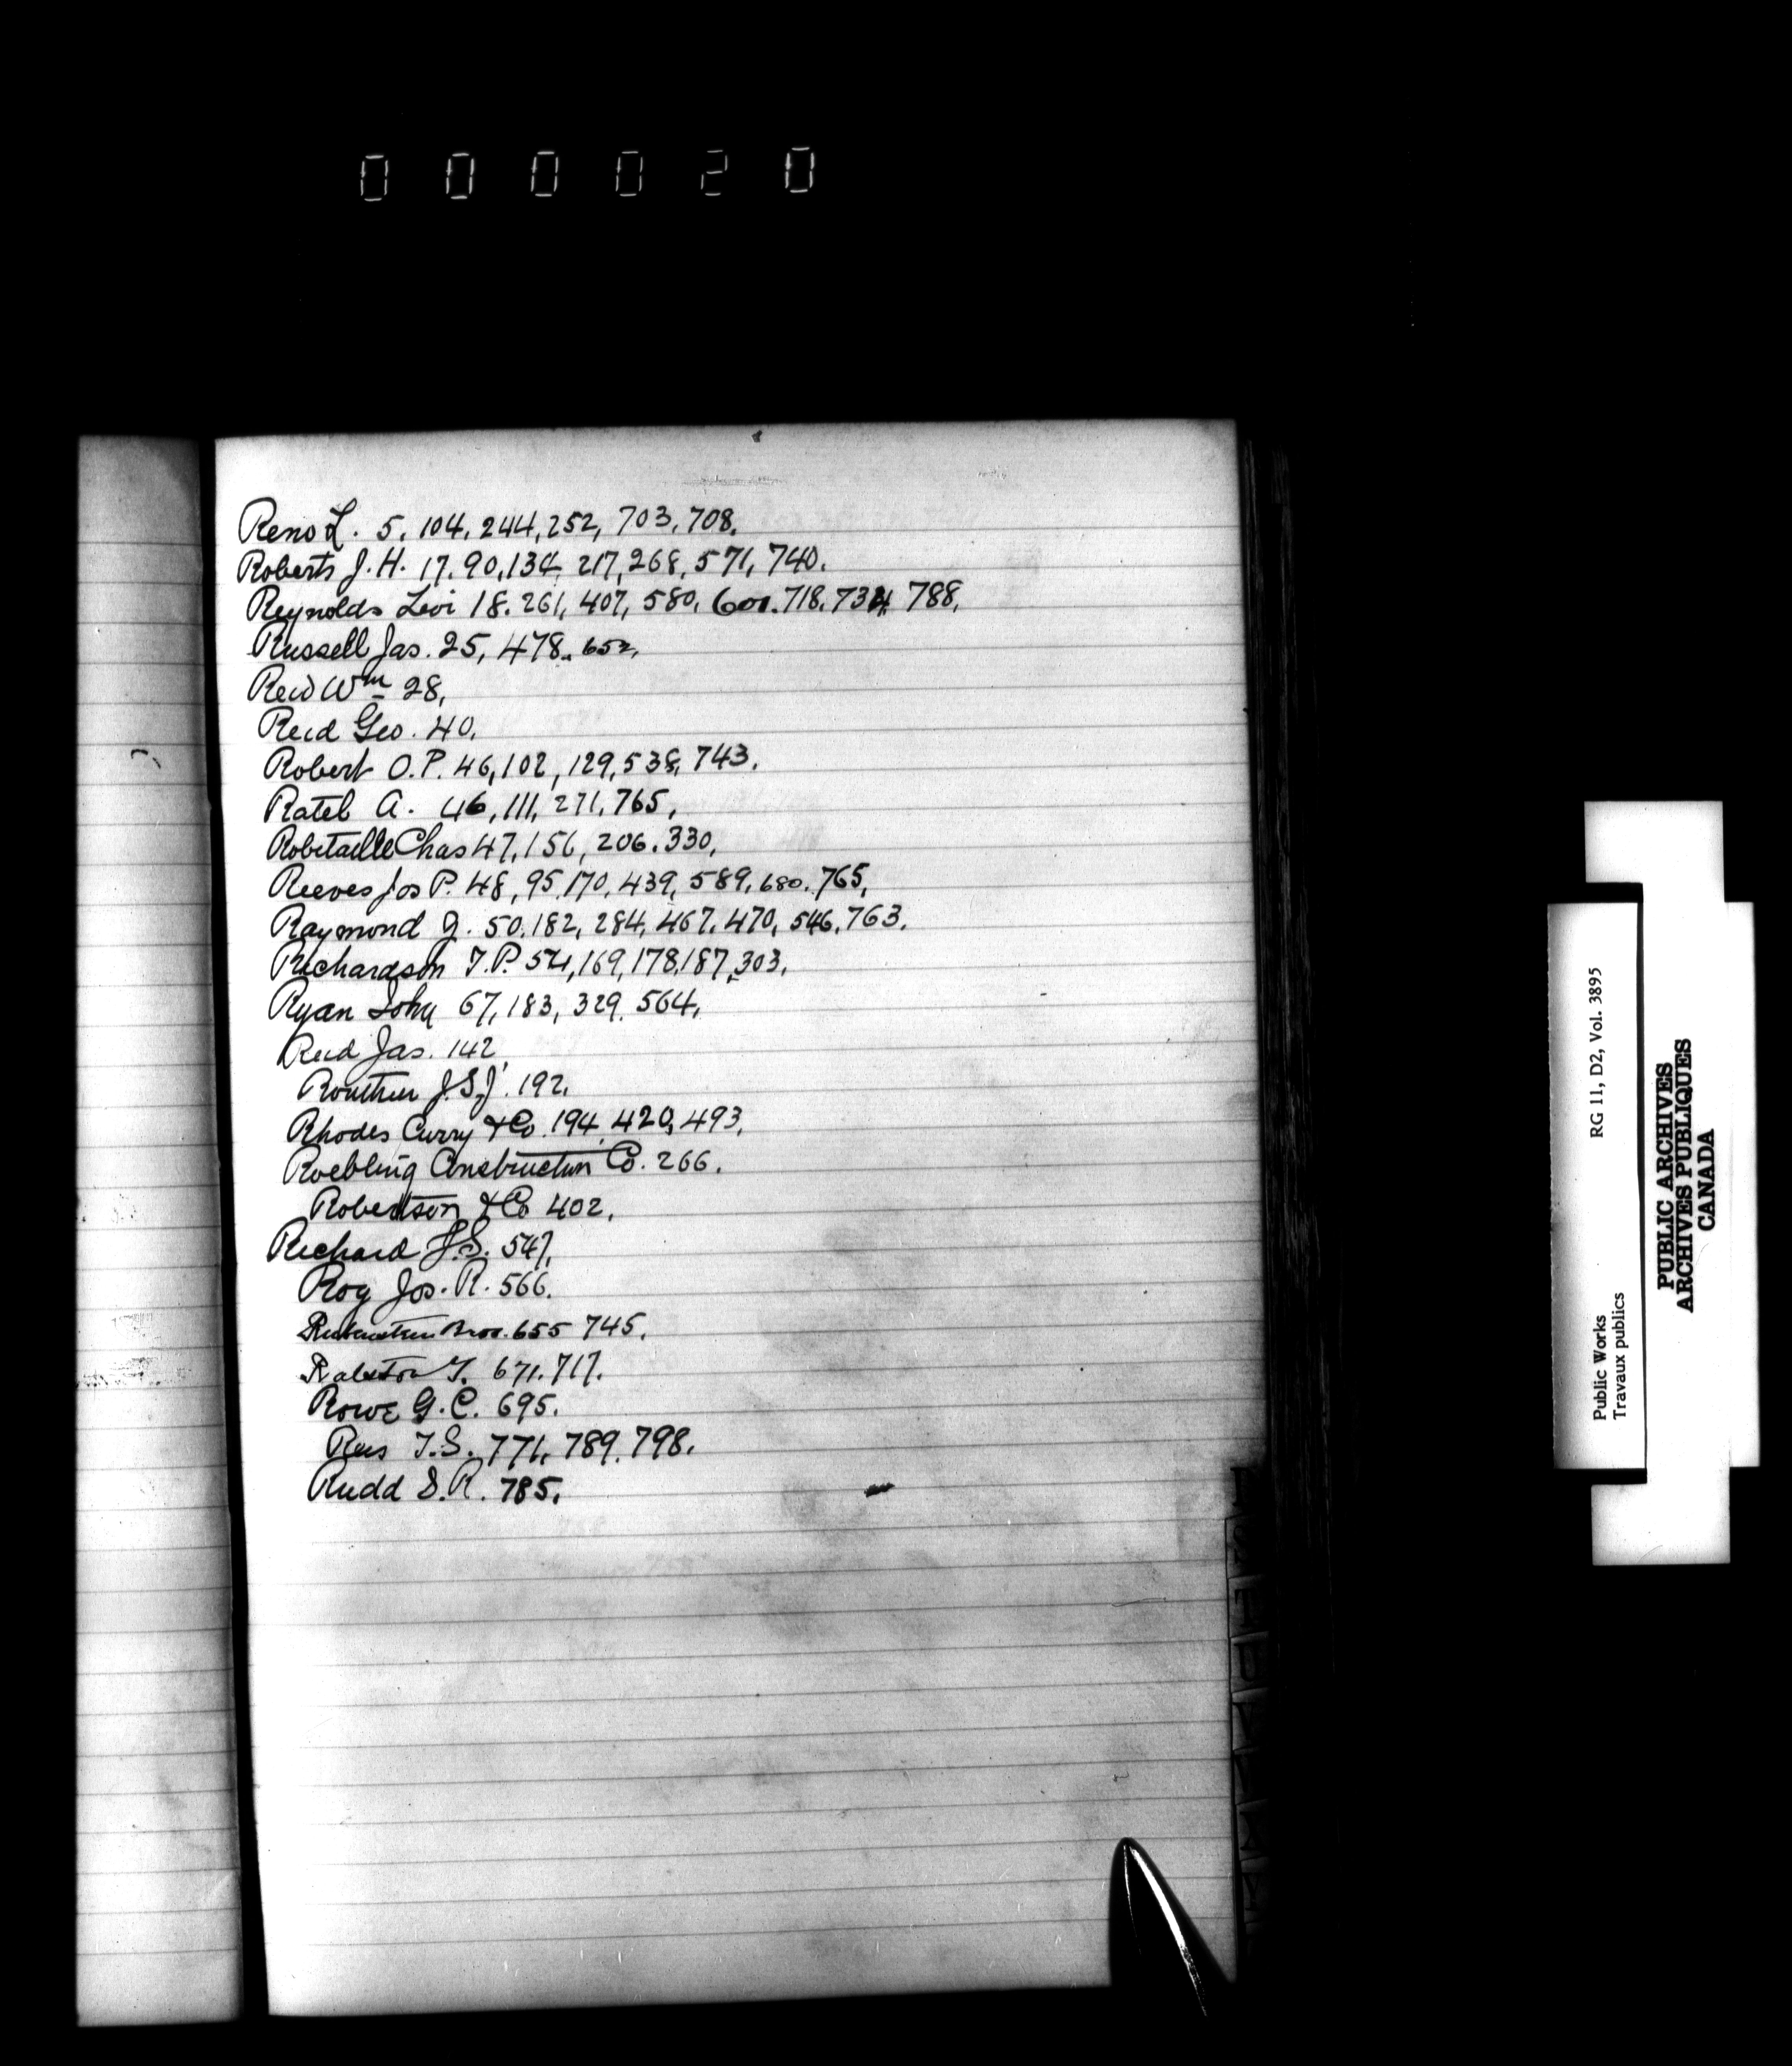 000020
Reno L. 5, 104, 244, 252, 703, 708,
Roberts J. H. 17, 90, 134, 217, 268, 571, 740.
Reynolds Levi 18, 261, 407, 580, 601, 718, 734, 788,
Russell Jas. 25, 478, 652,
Reid Wm 28,
Reid Geo. 40,
Robert O. P. 46, 102, 129, 538, 743.
Ratel A. 46, 111, 271, 765,
Robitaille Chas 47, 156, 206, 330,
Reeves Jos P. 48, 95, 170, 439, 589, 680, 765,
Raymond G. 50, 182, 284, 467, 470, 546, 763.
Richardson T. P. 54, 169, 178, 187, 303,
Ryan John 67, 183, 329, 564,
Reid Jas. 142,
Routhier 192,
Rhodes Curry & Co. 194, 420, 493,
Roebling Construction Co. 266.
Robertson & Co 402,
Richard J. S. 547,
Roy Jos. R. 566.
Rubenstein Bros. 655 745,
Ralston T. 671, 717.
Rowe G. C. 695.
T. S. 771, 789, 798.
Rudd S. R. 785,
RG 11, D2, Vol. 3895
Public Works
Travaux publics
PUBLIC ARCHIVES
ARCHIVES PUBLIQUES
CANADA